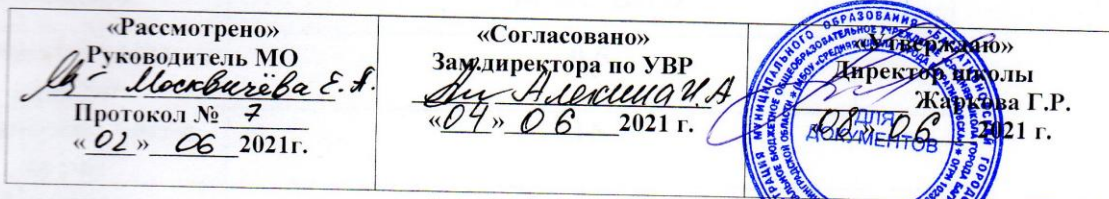 «Рассмотрено»
Руководитель МО
Москвичёва Е.А.
Протокол № 7
«02» 06 2021г.
«Согласовано»
Зам.директора по УВР
Алексина И.А
«04» 06 2021 г.
«Утверждаю»
Директор школы
Жаркова Г.Р.
«08» 06 2021 г.
ДЛЯ
ДОКУМЕНТОВ